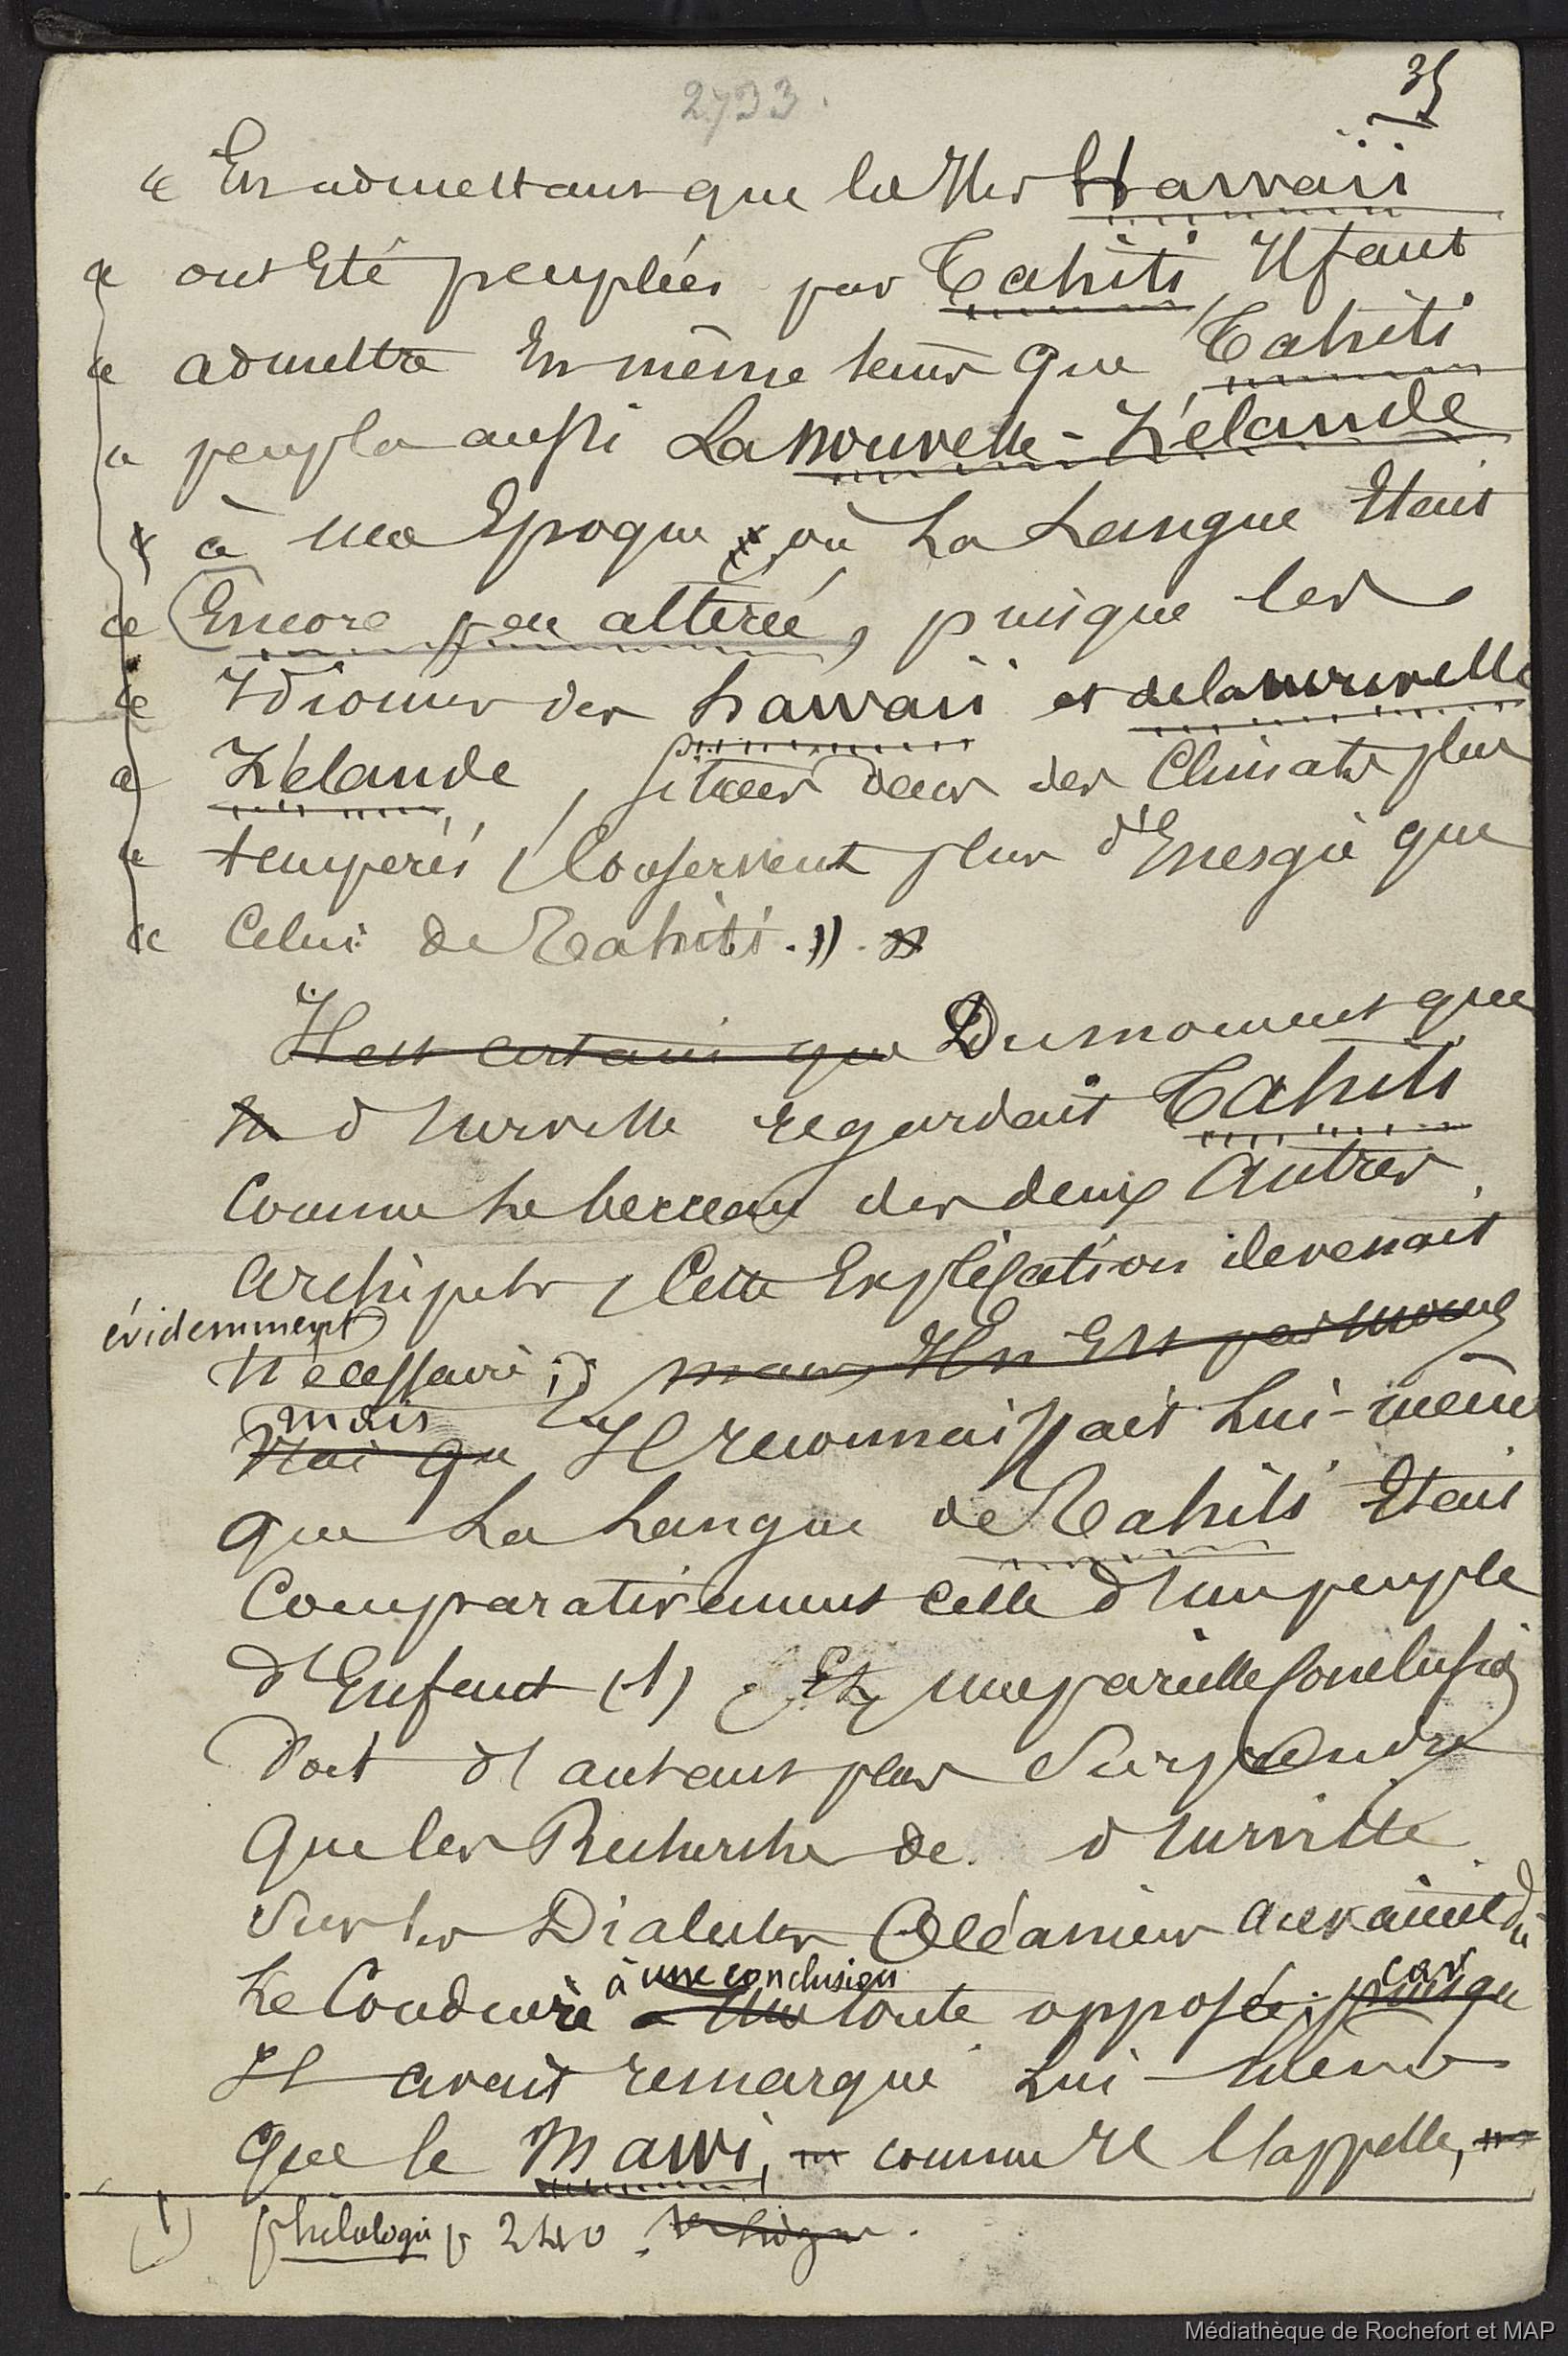 2733.
35
« En admettant que les Iles Hawaii
« ont Eté peuplées par Tahiti, Il faut
« admettre En même tems que Tahiti
« peupla aussi La nouvelle-Zélande
« à une Epoque où La Langue Etait
« Encore peu altérée, puisque les
« Idiomes des hawaii et de la nouvelle
« Zélande, situées dans des Climats plus
« tempérés, Conservent plus d'Energie que
« Celui de Tahiti. »
Il est certain que Du moment que
d'Urville regardait Tahiti
Comme Le berceau des deux autres
archipels, Cette Explication devenait
évidemment
nécessaire; mais Il n'en Est pas moins
mais
Vrai que Il reconnaissait Lui-même
que La Langue de Tahiti Etait
Comparativement celle d'un peuple
d'Enfant (1). Et, une pareille Conclusion
doit d'autant plus Surprendre
que les Recherches de d'Urville
Sur les Dialectes Océaniens auraient dû
à une conclusion car
Le Conduire à Une toute opposée; puisque
Il avait remarqué Lui-même
que le Mawi, comme Il l'appelle,
(1) philologie p 240.
Médiathèque de Rochefort et MAP